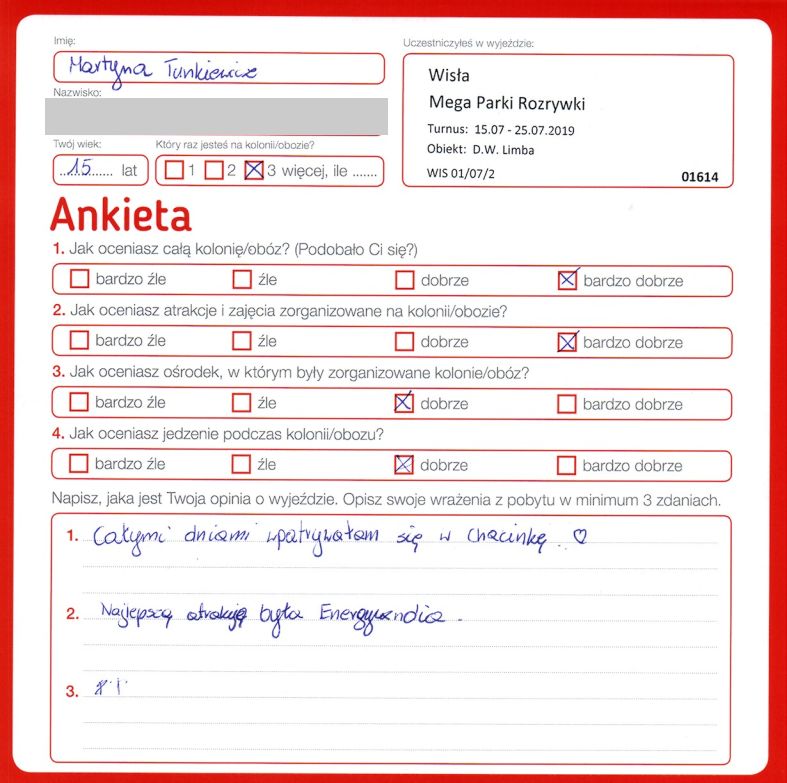 Imię:
Uczestniczyłeś w wyjeździe:
Martyna Tunkiewicz
Wisła
Mega Parki Rozrywki
Turnus: 15.07 - 25.07.2019
Obiekt: D.W. Limba
WIS 01/07/2
01614
Nazwisko:
Twój wiek:
Który raz jesteś na kolonii/obozie?
15 lat
1 2 3 więcej, ile .......
Ankieta
1. Jak oceniasz całą kolonię/obóz? (Podobało Ci się?)
bardzo źle źle dobrze bardzo dobrze
2. Jak oceniasz atrakcje i zajęcia zorganizowane na kolonii/obozie?
bardzo źle źle dobrze bardzo dobrze
3. Jak oceniasz ośrodek, w którym były zorganizowane kolonie/obóz?
bardzo źle źle dobrze bardzo dobrze
4. Jak oceniasz jedzenie podczas kolonii/obozu?
bardzo źle źle dobrze bardzo dobrze
Napisz, jaka jest Twoja opinia o wyjeździe. Opisz swoje wrażenia z pobytu w minimum 3 zdaniach.
1. Całymi dniami wpatrywałam się w Chacinkę .. ♡
2. Najlepszą atrakcją była Energylandia.
3.